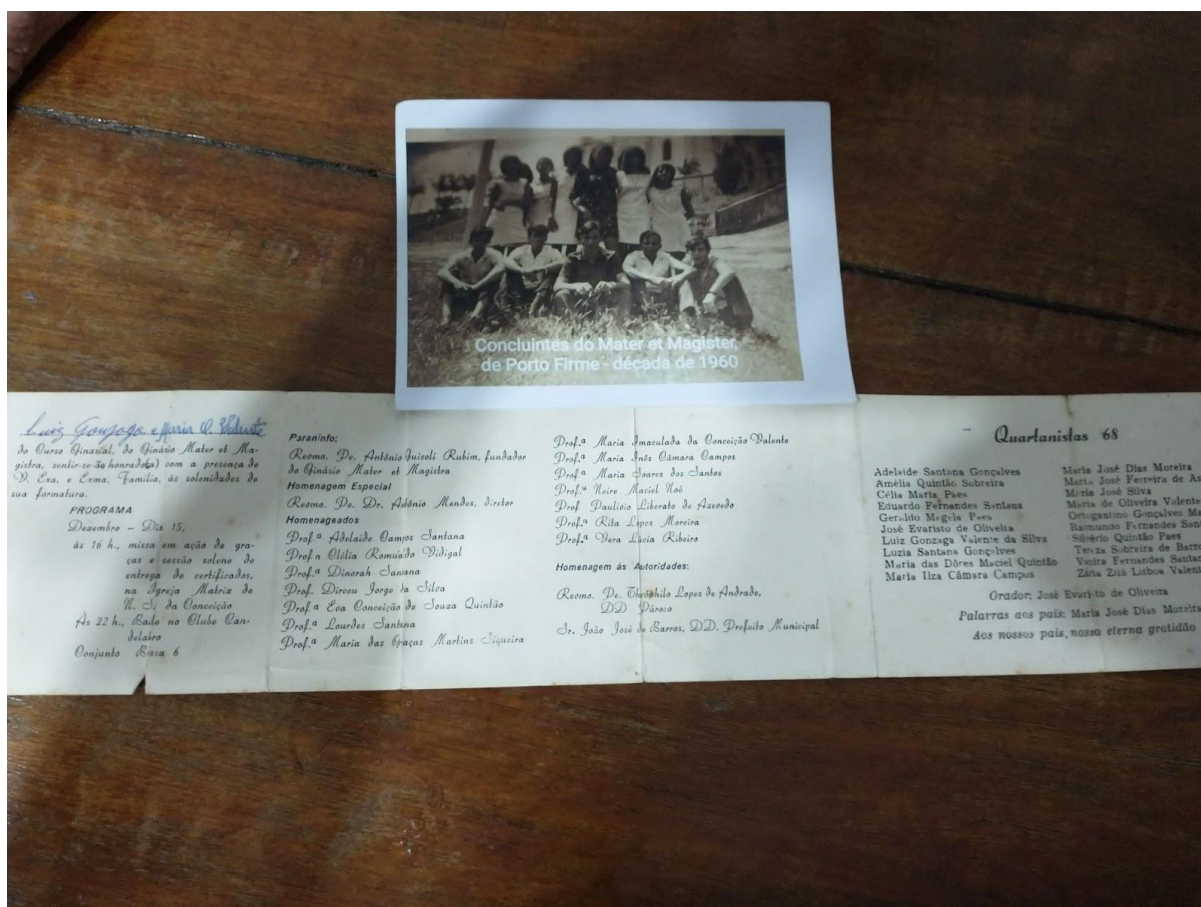 Concluintes do Mater et Magister,
de Porto Firme - década de 1960
Luiz Gonzaga e Maria O. Valente
do Curso Ginasial, do Ginásio Mater et Ma-
gistra, sentir-se-ão honrados(as) com a presença de
V. Exa. e Exma. Família, às solenidades de
sua formatura.
PROGRAMA
Dezembro - Dia 15,
às 16 h., missa em ação de gra-
ças e sessão solene de
entrega de certificados,
na Igreja Matriz de
N. S. da Conceição
Às 22 h., Baile no Clube Can-
delabro
Conjunto Brasa 6
Paraninfo:
Revmo. Pe. Antônio Quisoli Rubim, fundador
do Ginásio Mater et Magistra
Homenagem Especial
Revmo. Pe. Dr. Antônio Mendes, diretor
Homenageados
Prof.ª Adelaide Campos Santana
Prof.ª Clélia Romualdo Vidigal
Prof.ª Dinorah Santana
Prof. Dirceu Jorge da Silva
Prof.ª Eva Conceição de Souza Quintão
Prof.ª Lourdes Santana
Prof.ª Maria das Graças Martins Siqueira
Prof.ª Maria Imaculada da Conceição Valente
Prof.ª Maria Inês Câmara Campos
Prof.ª Maria Soares dos Santos
Prof.ª Neire Maciel Noé
Prof. Paulicio Liberato de Azevedo
Prof.ª Rita Lopes Moreira
Prof.ª Vera Lúcia Ribeiro
Homenagem às Autoridades:
Revmo. Pe. Theóphilo Lopes de Andrade,
DD. Pároco
Sr. João José de Barros, DD. Prefeito Municipal
Quartanistas 68
Adelaide Santana Gonçalves
Amélia Quintão Sobreira
Célia Maria Paes
Eduardo Fernandes Santana
Geraldo Magela Paes
José Evaristo de Oliveira
Luiz Gonzaga Valente da Silva
Luzia Santana Gonçalves
Maria das Dôres Maciel Quintão
Maria Ilza Câmara Campos
Maria José Dias Moreira
Maria José Ferreira de
Maria José Silva
Maria de Oliveira Valente
Ortogantino Gonçalves
Raimundo Fernandes
Silvério Quintão Paes
Tereza Sobreira de
Vieira Fernandes
Zânia Zitã Lisboa
Orador: José Evaristo de Oliveira
Palavras aos pais: Maria José Dias Moreira
Aos nossos pais, nossa eterna gratidão